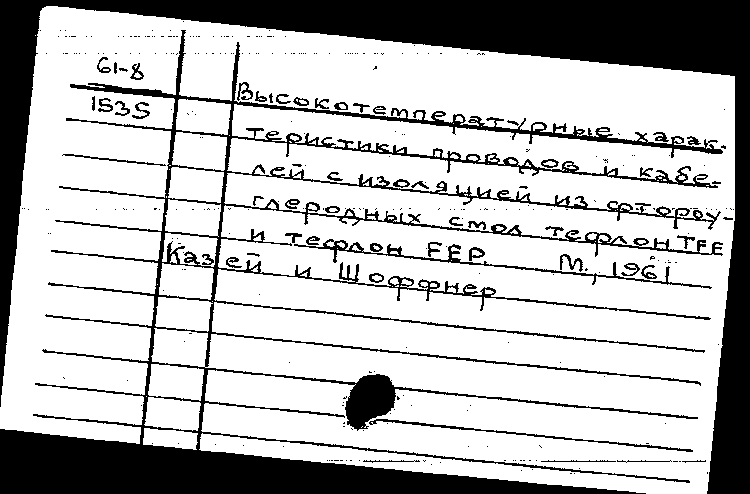 61-8
1535
Высокотемпературные харак-
теристики проводов и кабе-
лей с изоляцией из фтороу-
глеродных смол тефлон TFE
и тефлон FEP. М., 1961
Казей и Шоффнер